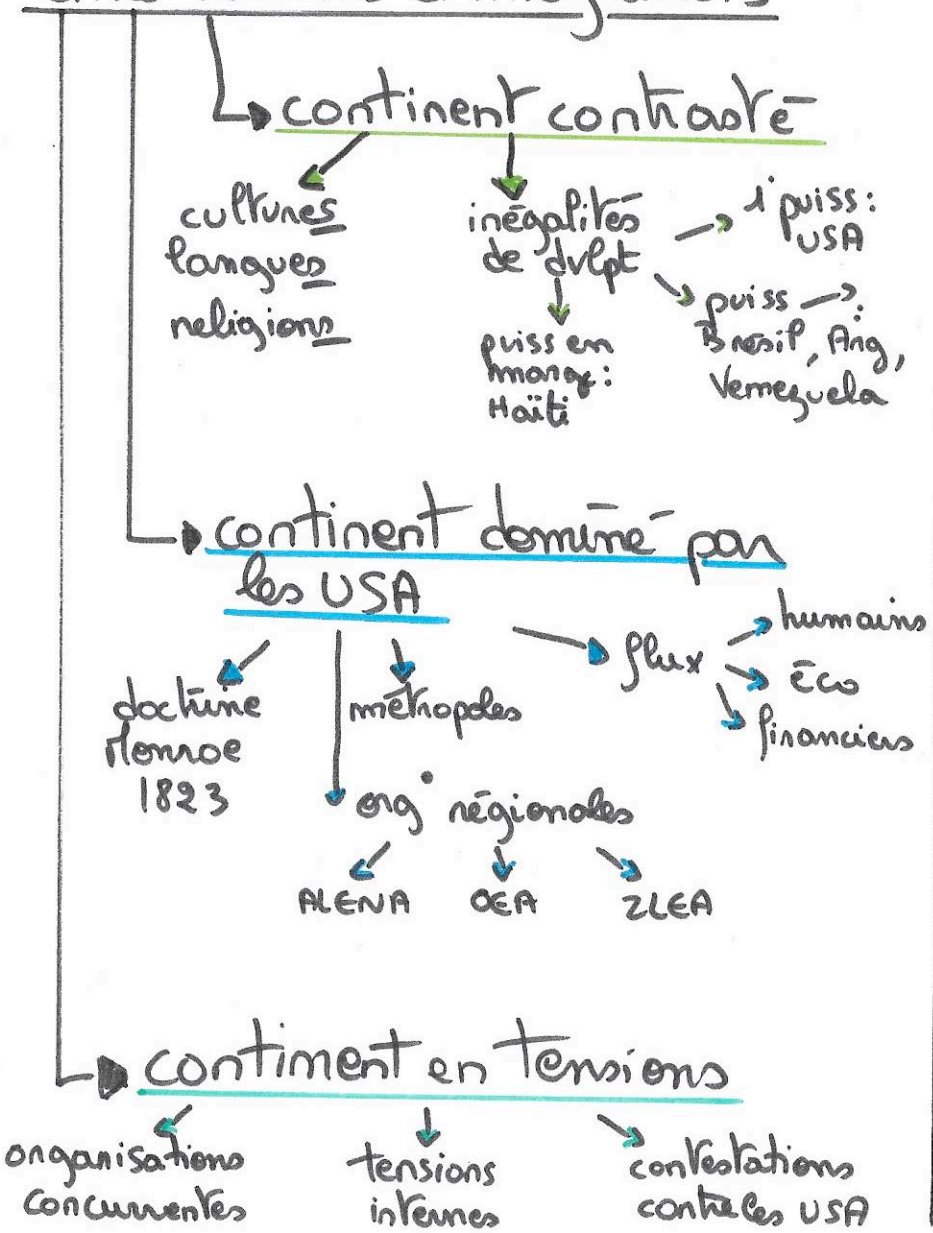 continent contrasté
cultures
langues
religions
inégalités
de dvlpt
1° puiss:
USA
puiss
Brésil, Arg,
Venezuela
puiss en
marge:
Haïti
continent dominé par
les USA
doctrine
Monroe
1823
métropoles
flux
humains
éco
financiers
org° régionales
ALENA OEA ZLEA
continent en tensions
organisations
concurrentes
tensions
internes
contestations
contre les USA